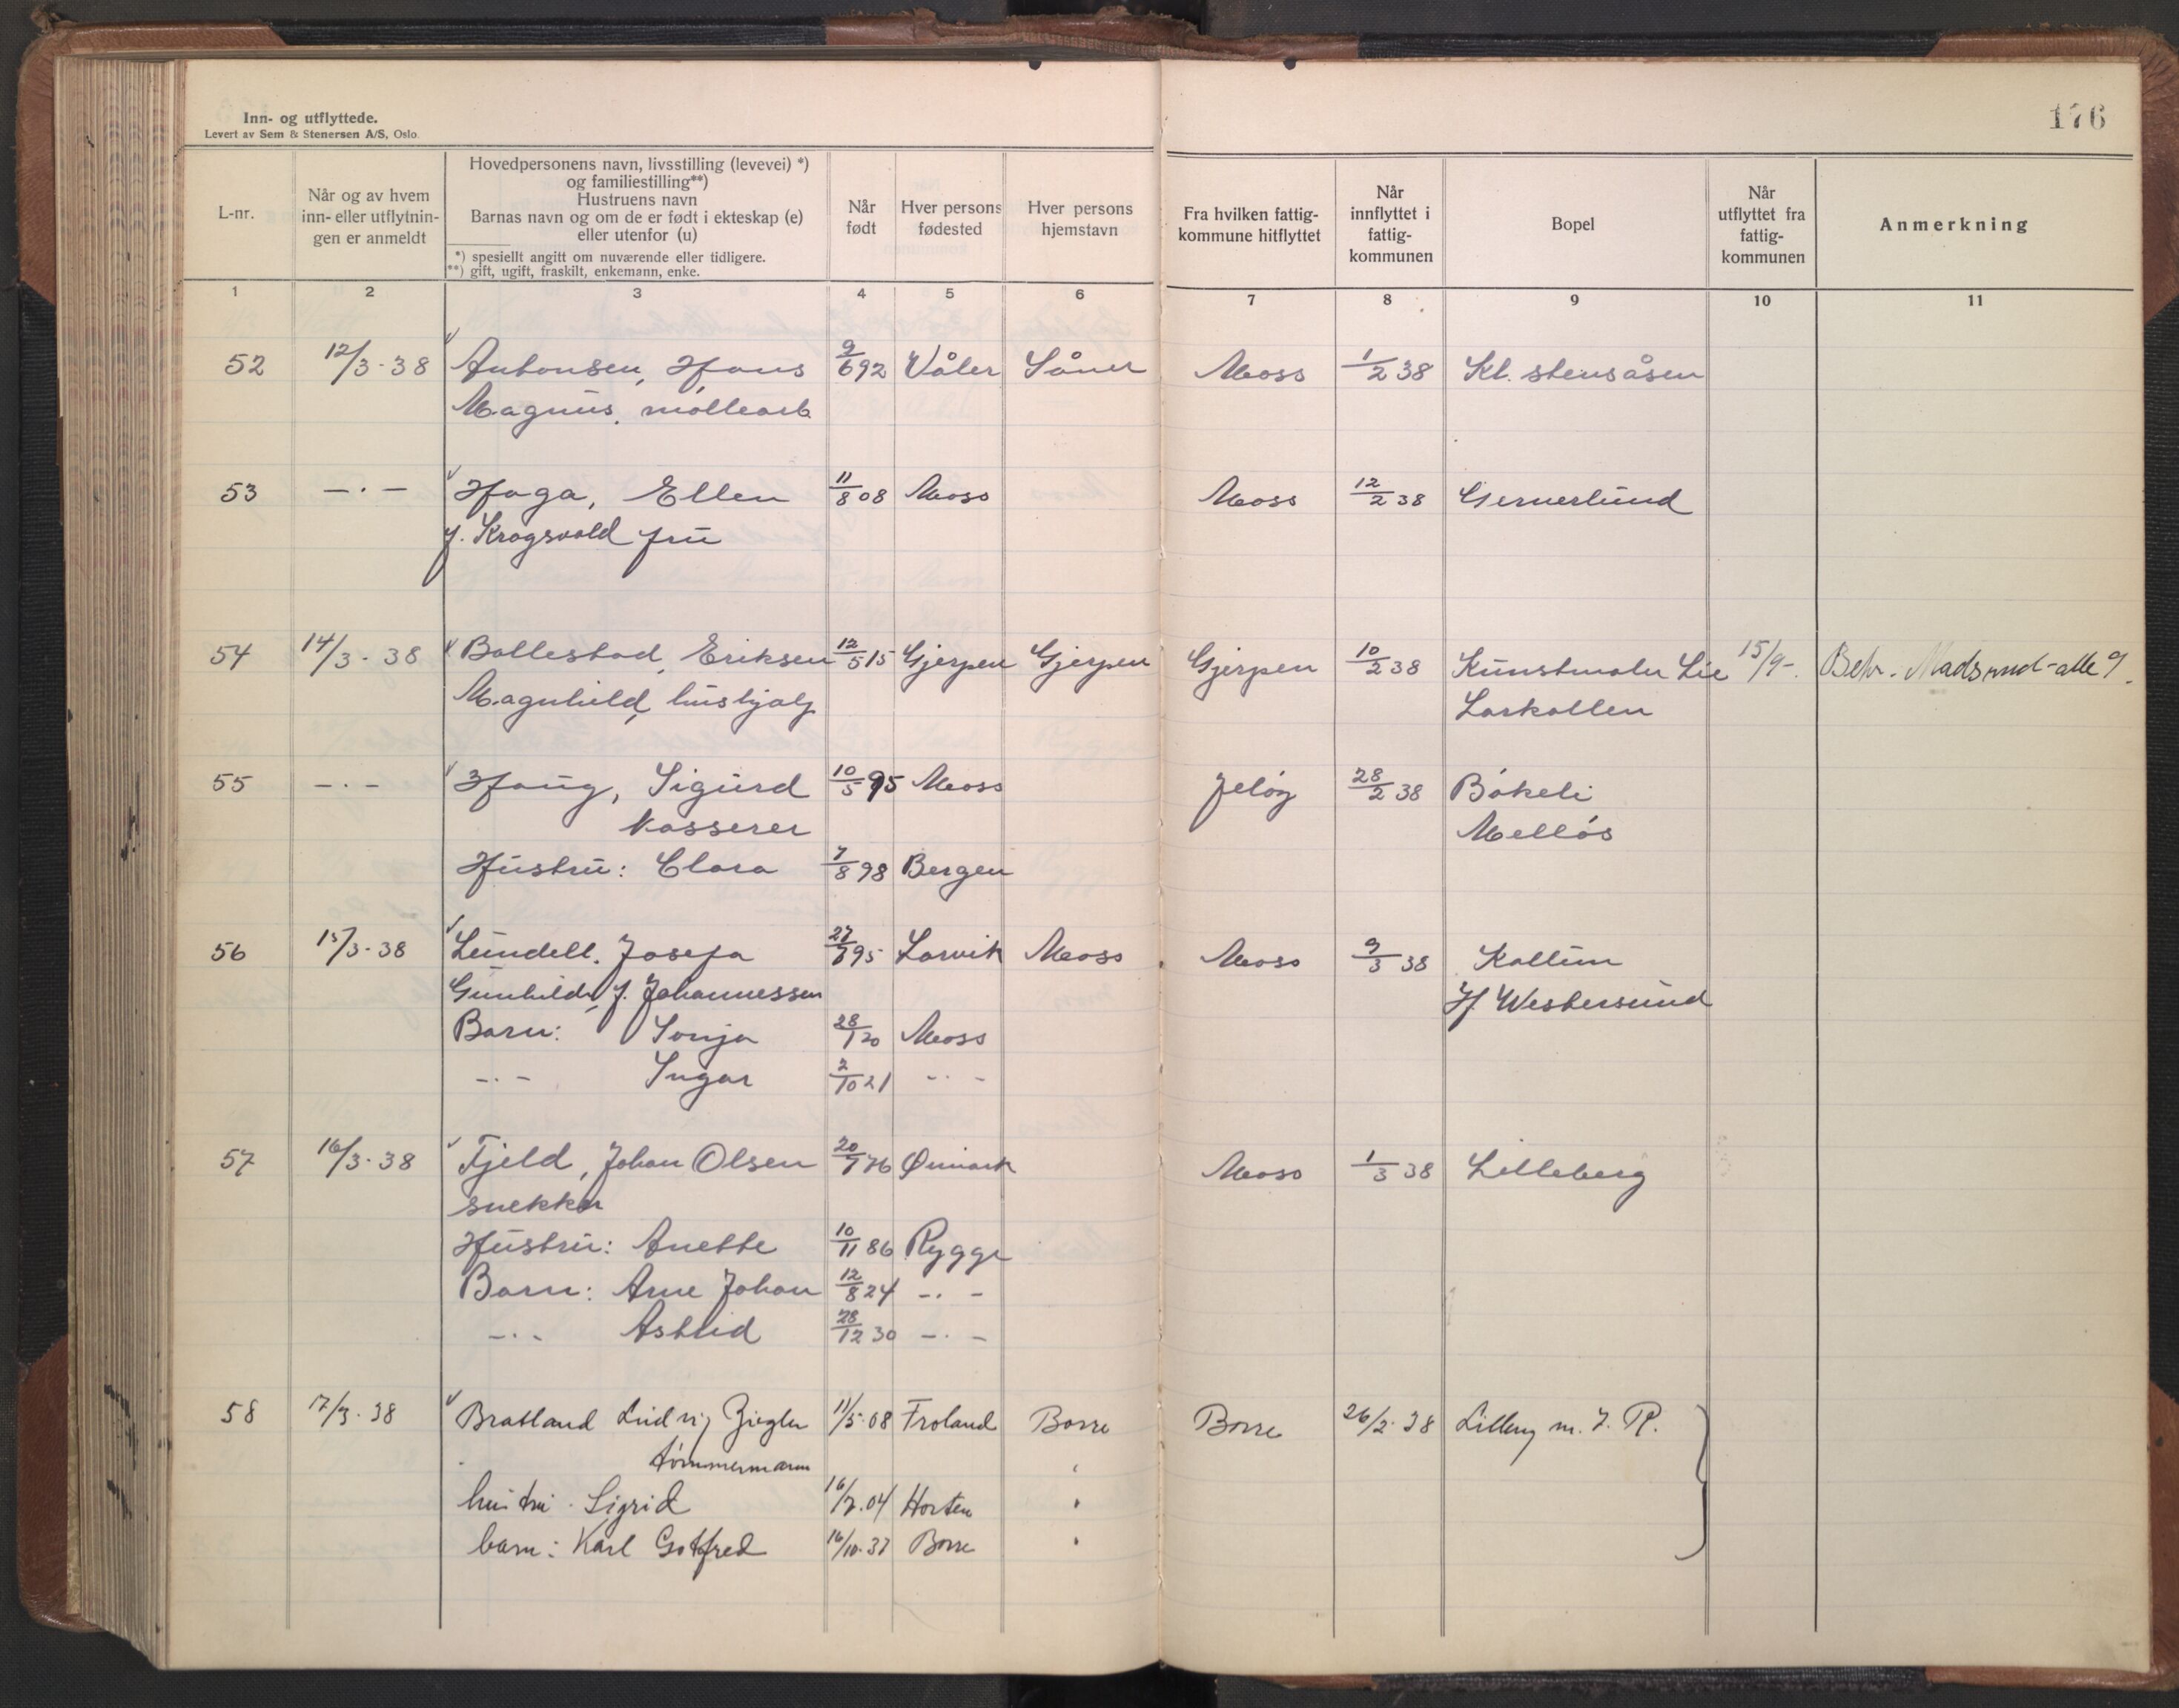 Inn- og utflyttede.
Levert av Sem & Stenersen A/S, Oslo.
176
L-nr.
Når og av hvem inn- eller utflytnin- gen er anmeldt
Hovedpersonens navn, livsstilling (levevei) *)
og familiestilling**)
Hustruens navn
Barnas navn og om de er født i ekteskap (e)
eller utenfor (u)
*) spesiellt angitt om nuværende eller tidligere.
**) gift, ugift, fraskilt, enkemann, enke.
Når født
Hver persons fødested
Hver persons hjemstavn
Fra hvilken fattig- kommune hitflyttet
Når innflyttet i fattig- kommunen
Bopel
Når utflyttet fra fattig- kommunen
Anmerkning
1 2 3 4 5 6 7 8 9 10 11
52 12/3-38 Antonsen, Hans 9/6 92 Våler Såner Moss 1/2 38 Kl. stensåsen
Magnus, møllearb.
53 -·- Haga, Ellen 11/8 08 Moss Moss 12/2 38 Gernerlund
f. Krogsvold fru
54 14/3-38 Bollestad, Eriksen 12/5 15 Gjerpen Gjerpen Gjerpen 10/2 38 Kunstmaler Lie 15/9-. Madsrud-alle 9.
Magnhild, hushjelp Larkollen
55 -·- Haug, Sigurd 10/5 95 Moss Jeløy 28/2 38 Bøkeli
kasserer Melløs
Hustru: Clara 7/8 98 Bergen
56 15/3-38 Lundell, Josefa 95 Larvik Moss Moss 9/3 38 Kallum
Gunhild, f. Johannessen H. Westersund
Barn: Sonja 28/1 20 Moss
-·- Ingar 2/10 21 -·-
57 16/3-38 Fjeld, Johan Olsen 20/7 76 Ømark Moss 1/3 38 Lilleberg
snekker
Hustru: Anette 10/11 86 Rygge
Barn: Arne Johan 12/8 24 -·-
-·- Astrid 28/12 30 -·-
58 17/3-38 Bratland Ludvig Ziegler 11/5-08 Froland Borre Borre 26/2-38 m. J. R.
tømmermann
hustru Sigrid 04 Horten "
barn: Karl Gotfred 16/10-37 Borre "